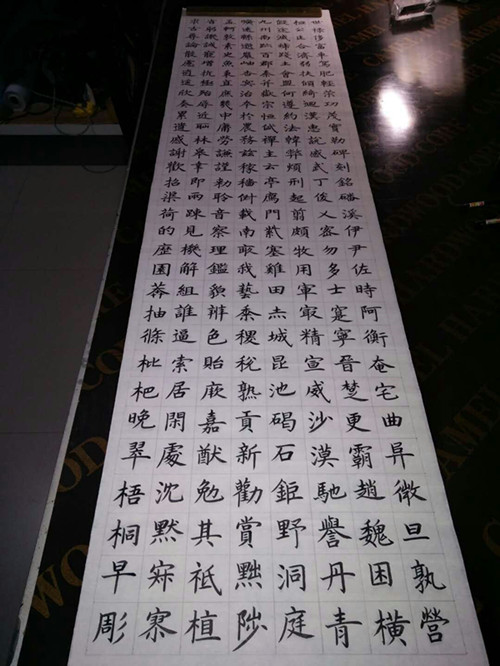 世祿侈富車駕肥輕策功茂實勒碑刻銘磻溪伊尹佐時阿衡奄宅曲阜微旦孰營
桓公匡合濟弱扶傾綺迴漢惠說感武丁俊乂密勿多士寔寧晉楚更霸趙魏困橫
假途滅虢踐土會盟何遵約法韓弊煩刑起翦頗牧用軍最精宣威沙漠馳譽丹青
九州禹跡百郡秦并嶽宗恒岱禪主云亭鴈門紫塞雞田赤城昆池碣石鉅野洞庭
曠遠緜邈巖岫杳冥治本於農務茲稼穡俶載南畝我藝黍稷稅熟貢新勸賞黜陟
孟軻敦素史魚秉直庶幾中庸勞謙謹勑聆音察理鑑貌辨色貽厥嘉猷勉其祗植
省躬譏誡寵增抗極殆辱近恥林皋幸即兩疎見機解組誰逼索居閑處沈默寂寥
求古尋論散慮逍遙欣奏累遣慼謝歡招渠荷的歷園莽抽條枇杷晚翠梧桐早彫